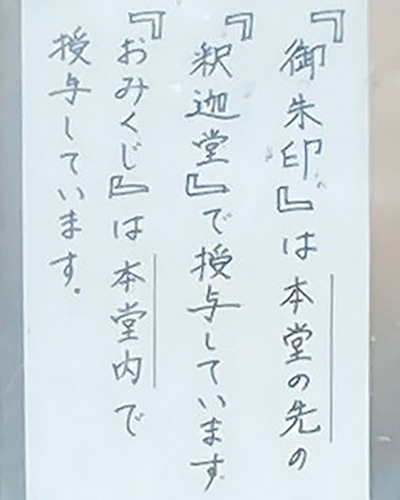 『御朱印』は本堂の先の
『釈迦堂』で授与しています
『おみくじ』は本堂内で
授与しています。